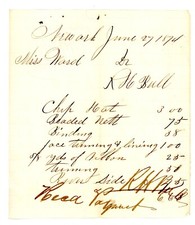 Newark June 27 1874
Miss Ward Dr
R H Ball
Chip Hat 3 00
Beaded Nett 75
Binding 38
face trimming & lining 100
yds of ribbon 25
trimming 50
Side
Recd Payment